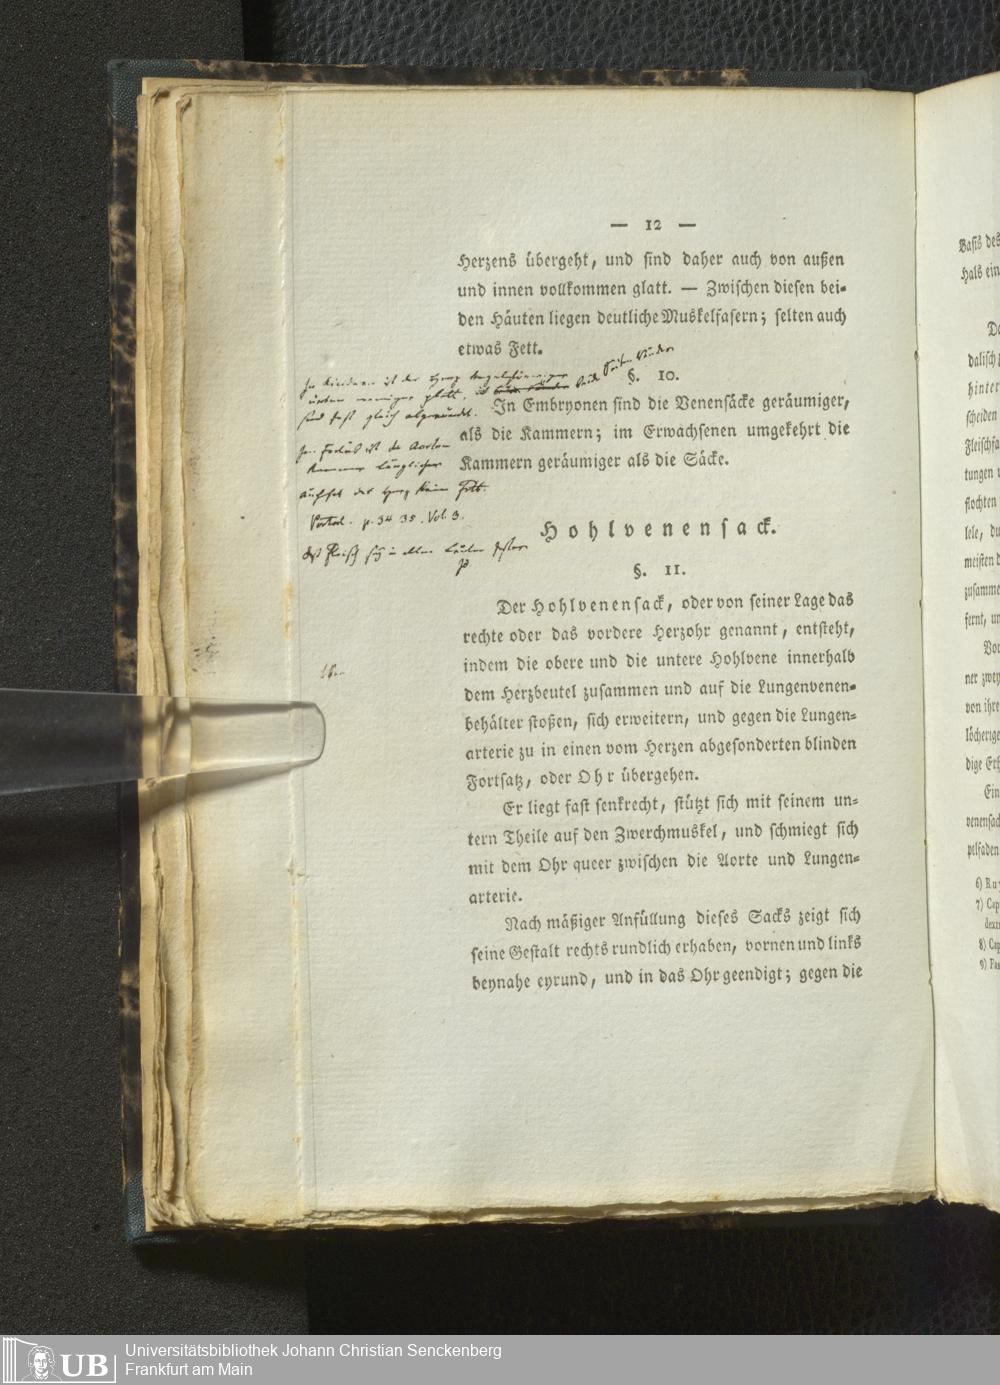 — 12 —
Herzens übergeht, und sind daher auch von außen
und innen vollkommen glatt. — Zwischen diesen bei-
den Häuten liegen deutliche Muskelfasern; selten auch
etwas Fett.
§. 10.
In Embryonen sind die Venensäcke geräumiger,
als die Kammern; im Erwachsenen umgekehrt die
Kammern geräumiger als die Säcke.
ist der Herz
sind fast gleich abgerundet.
ist die Aorten
Kammer länglicher
auch hat das Herz kein Fett.
Portal. p. 34 35. Vol. 3.
Hohlvenensack.
§. 11.
Der Hohlvenensack, oder von seiner Lage das
rechte oder das vordere Herzohr genannt, entsteht,
indem die obere und die untere Hohlvene innerhalb
dem Herzbeutel zusammen und auf die Lungenvenen-
behälter stoßen, sich erweitern, und gegen die Lungen-
arterie zu in einen vom Herzen abgesonderten blinden
Fortsatz, oder Ohr übergehen.
Er liegt fast senkrecht, stützt sich mit seinem un-
tern Theile auf den Zwerchmuskel, und schmiegt sich
mit dem Ohr queer zwischen die Aorte und Lungen-
arterie.
Nach mäßiger Anfüllung dieses Sacks zeigt sich
seine Gestalt rechts rundlich erhaben, vornen und links
beynahe eyrund, und in das Ohr geendigt; gegen die
Basis des
Hals ein
dalisch
hinter
scheiden
tungen
flochten
lele,
zusamme
ner zwey
von ihre
löcherige
Ein
6)
7) Cap
8) Cap
9)
UB
Universitätsbibliothek Johann Christian Senckenberg
Frankfurt am Main